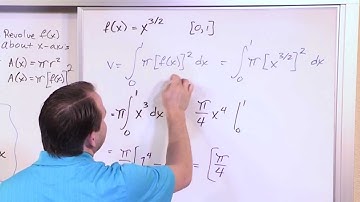 Revolve f(x)
about x-axis
A(x) = πr²
A(x) = π[f(x)]²
f(x) = x^{3/2} [0,1]
V = ∫₀¹ π[f(x)]² dx = ∫₀¹ π[x^{3/2}]² dx
= π∫₀¹ x³ dx π/4 x⁴ |₀¹
= π/4 [1⁴ = [π/4